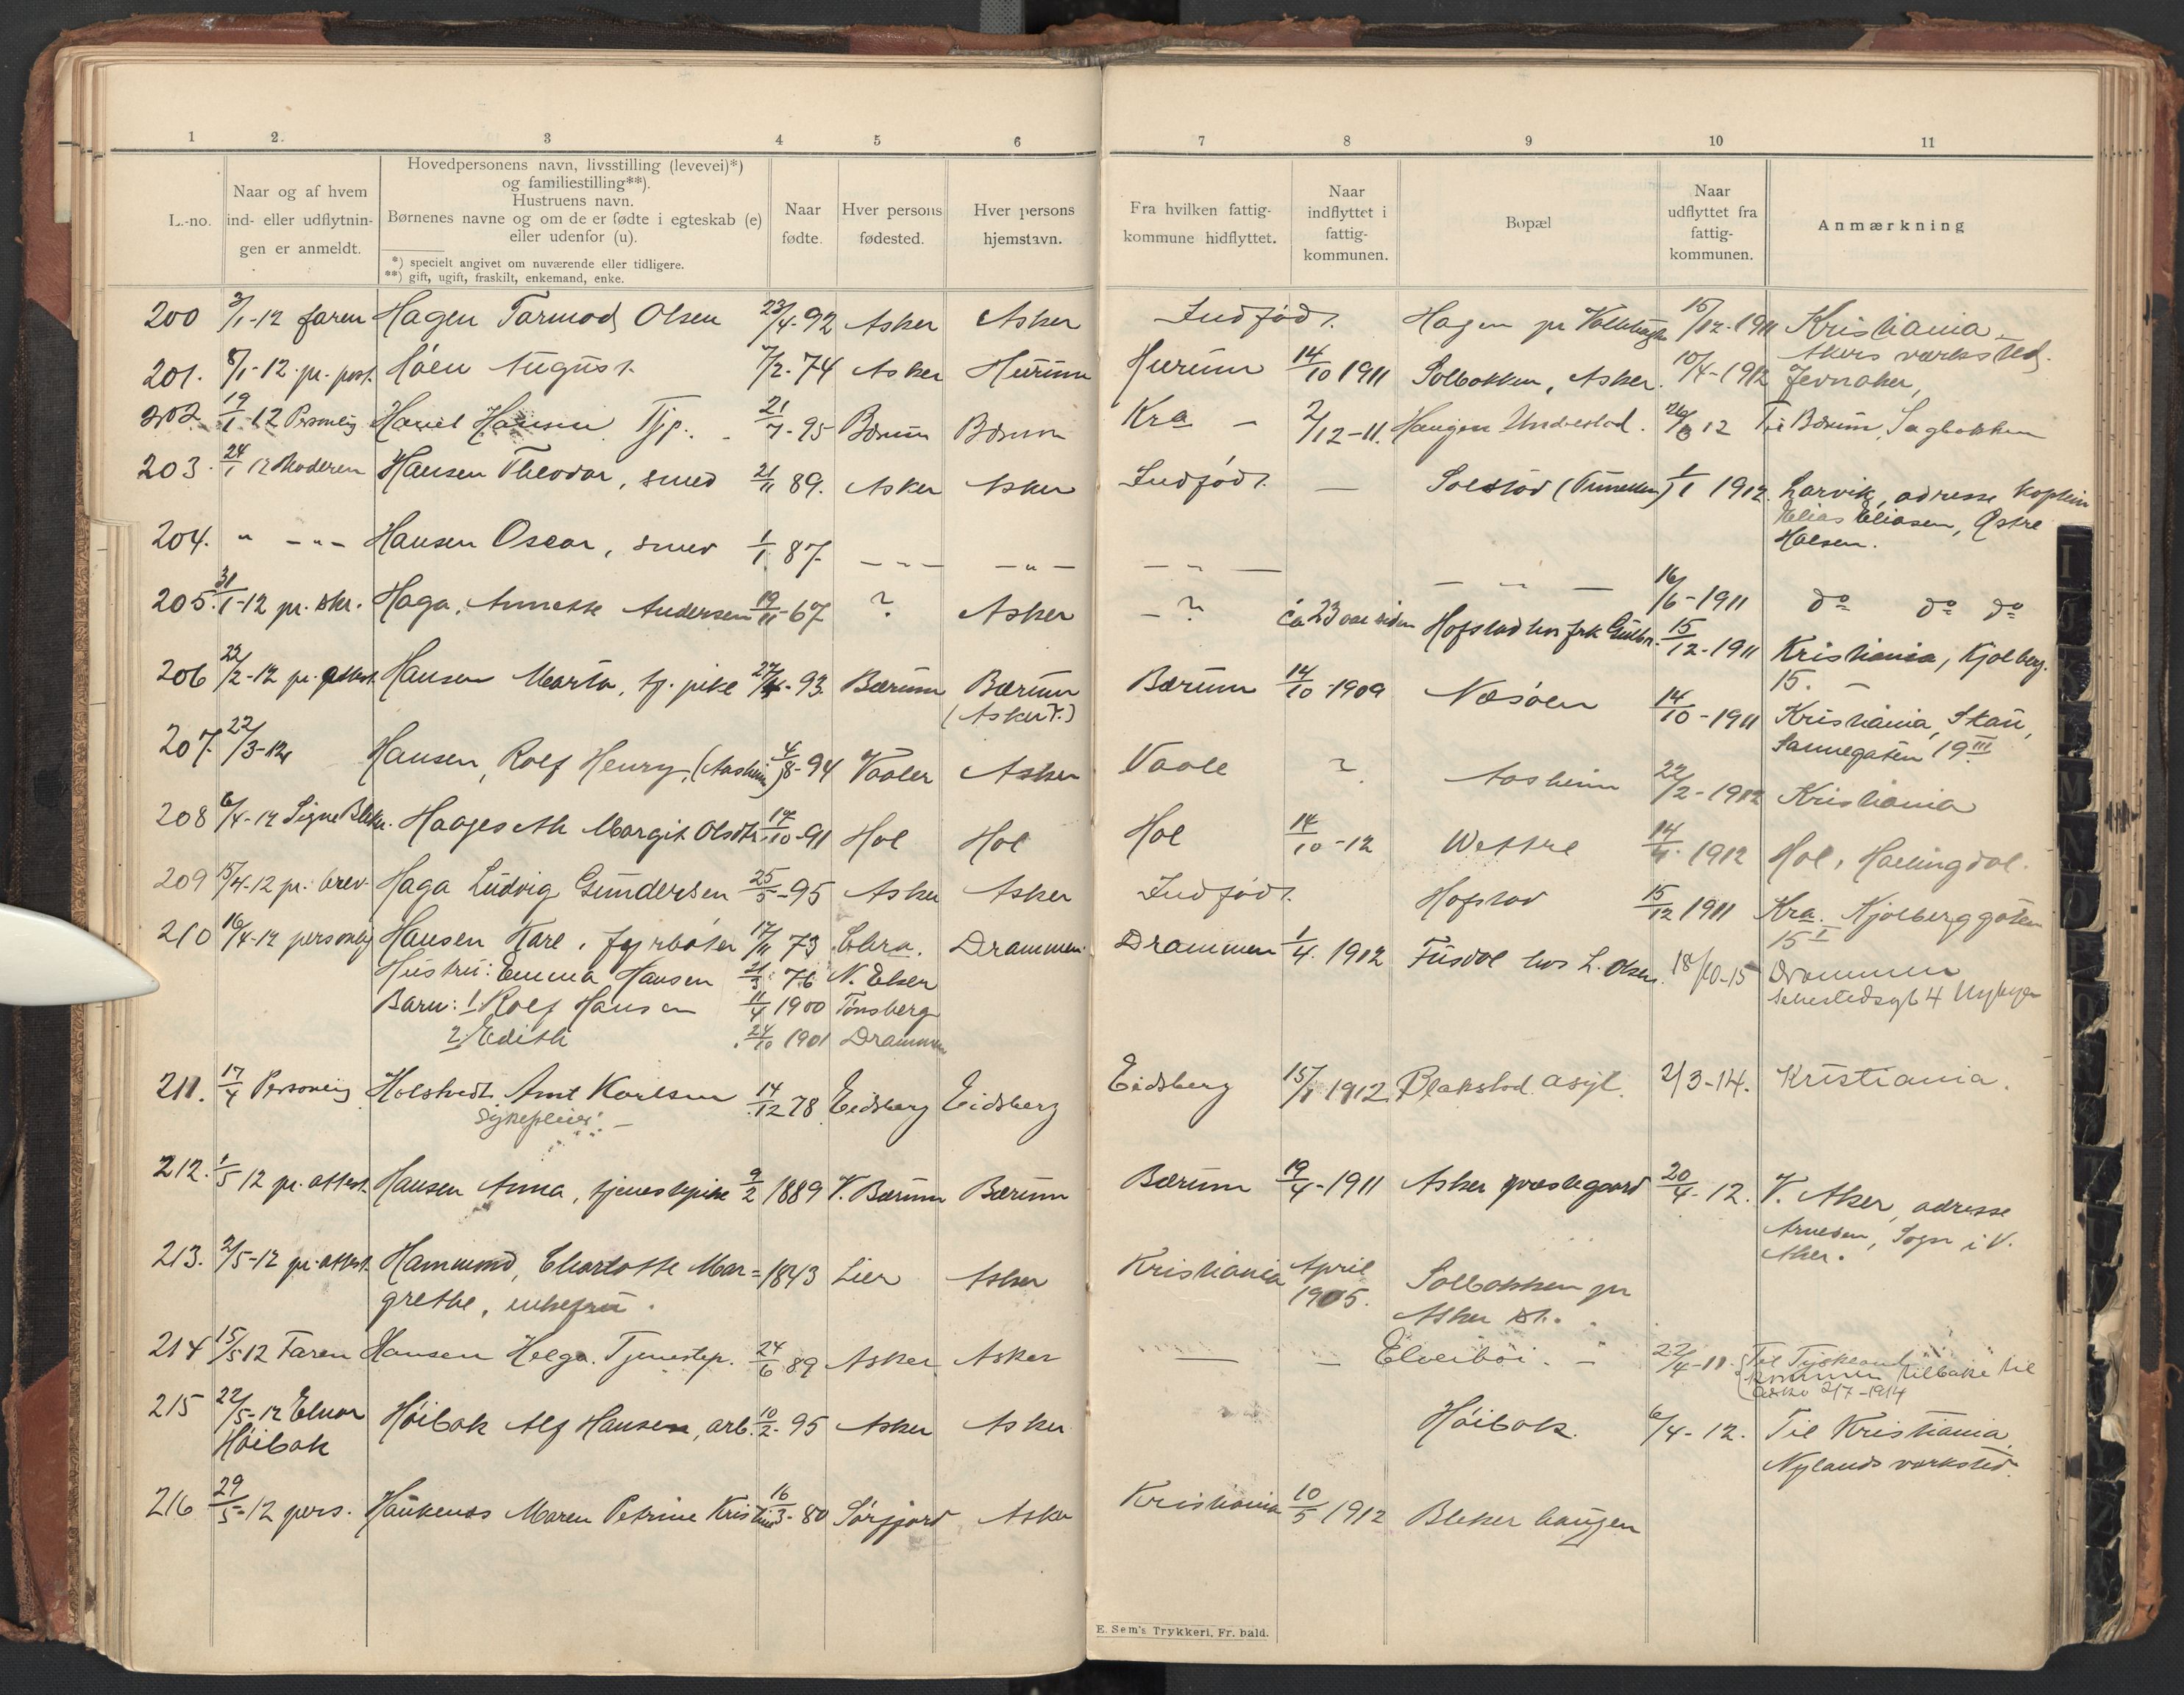 1 2. 3 4 5 6 7 8 9 10 11
L.-no.
Naar og af hvem
ind- eller udflytnin-
gen er anmeldt.
Hovedpersonens navn, livsstilling (levevei)*)
og familiestilling**).
Hustruens navn.
Børnenes navne og om de er fødte i egteskab (e)
eller udenfor (u).
*) specielt angivet om nuværende eller tidligere.
**) gift, ugift, fraskilt, enkemand, enke.
Naar
fødte.
Hver persons
fødested.
Hver persons
hjemstavn.
Fra hvilken fattig-
kommune hidflyttet.
Naar
indflyttet i
fattig-
kommunen.
Bopæl
Naar
udflyttet fra
fattig-
kommunen.
Anmærkning
200 3/1-12 faren Hagen Tormod Olsen 23/4-92 Asker Asker Indfødt. Hagen pr 15/12-1911 Kristiania
Akers værksted.
201. 8/1-12 pr. post. Høen August 7/2-74 Asker Hurum Hurum 14/10 1911 Solbakken, Asker. 10/4-1912 Jevnaker,
202 19/1-12 Personlig Hansen Tjp. 21/7-95 Bærum Bærum Kra - 2/12-11. Haugen Undelstad. 12 Til Bærum, Sagbakken
203. 24/1 12 Moderen Hansen Theodor, smed 21/11 89. Asker Asker Indfødt. — Solstad 1/1 1912. Larvik, adresse kaptein
Elias Eliasen, Østre
Halsen.
204. " - " - Hansen Oscar, smed 1/1 87 - " - - " - - " - - " - 16/6-1911 do do do
205. 31/1-12 pr. skr. Haga, Annette Andersen 19/11-67 ? Asker - ? ca 23 aar siden Hofstad hos frk 15/12-1911 Kristiania, Kjølberg.
15. -
206 22/2-12 pr. attest. Hansen Marta, tj. pike 27/4-93. Bærum Bærum
(Asker?)
Bærum 14/10-1909 Næsøen 14/10-1911 Kristiania, Skau,
Sannegaten 19 III
207 22/3-12 Hansen, Rolf Henry, (Aasheim) 4/8-94 Vaaler Asker Vaale ? Aasheim 22/2-1912 Kristiania
208 6/4-12 Signe Haageseth Margit Olsdtr. 17/10-91 Hol Hol Hol 14/10-12 Wettre 14/4. 1912 Hol, Hallingdal.
209 15/4-12 pr. brev. Haga Ludvig Gundersen 25/5-95 Asker Asker Indfødt. Hofstad 15/12 1911 Kra. Kjølberggaten
15 I
210 16/4-12 personlig Hansen Karl, fyrbøter 17/11 73 Chra. Drammen. Drammen 1/4. 1912 Fusdal hos L. Olsen. 18/10-15 Drammen
4
Hustru: Emma Hansen 21/3 76 N. Eker
Barn: 1. Rolf Hansen 11/4 1900 Tønsberg
2. Edith 24/10 1901 Drammen
211. 17/4 Personlig Holstvedt. Amt Karlsen 14/12 78 Eidsberg Eidsberg Eidsberg 15/1 1912 Blakstad asyl. 2/3-14. Kristiania.
Sykepleier. -
212. 1/5 12 pr. attest. Hansen Anna, tjenestepike 9/2 1889 V. Bærum Bærum Bærum 19/4-1911 Asker præstegaard 20/4-12. V. Aker, adresse
Arnesen, Sogn i V.
Aker.
213. 2/5-12 pr. attest. Hammond, Charlotte Mar= 1843 Lier Asker Kristiania April
1905. Solbakken pr
Asker st.
grethe, enkefru.
214 15/5 12 Faren Hansen Helga. Tjenestep. 24/6 89 Asker Asker — - Elvebøi. - 22/4-11. Til Tyskland
kommen tilbake til
Asker 2/7-1914
215 22/5-12 Einar
Høibak
Høibak Alf Hansen, arb. 10/2-95 Asker Asker Høibak. 6/4-12. Til Kristiania
Nylands værksted.
216 29/5-12 pers. Haukenæs Maren Petrine Kristine 16/3-80 Sørfjord Asker Kristiania 10/5 1912 Bleker haugen
E. Sem's Trykkeri, Fr. hald.